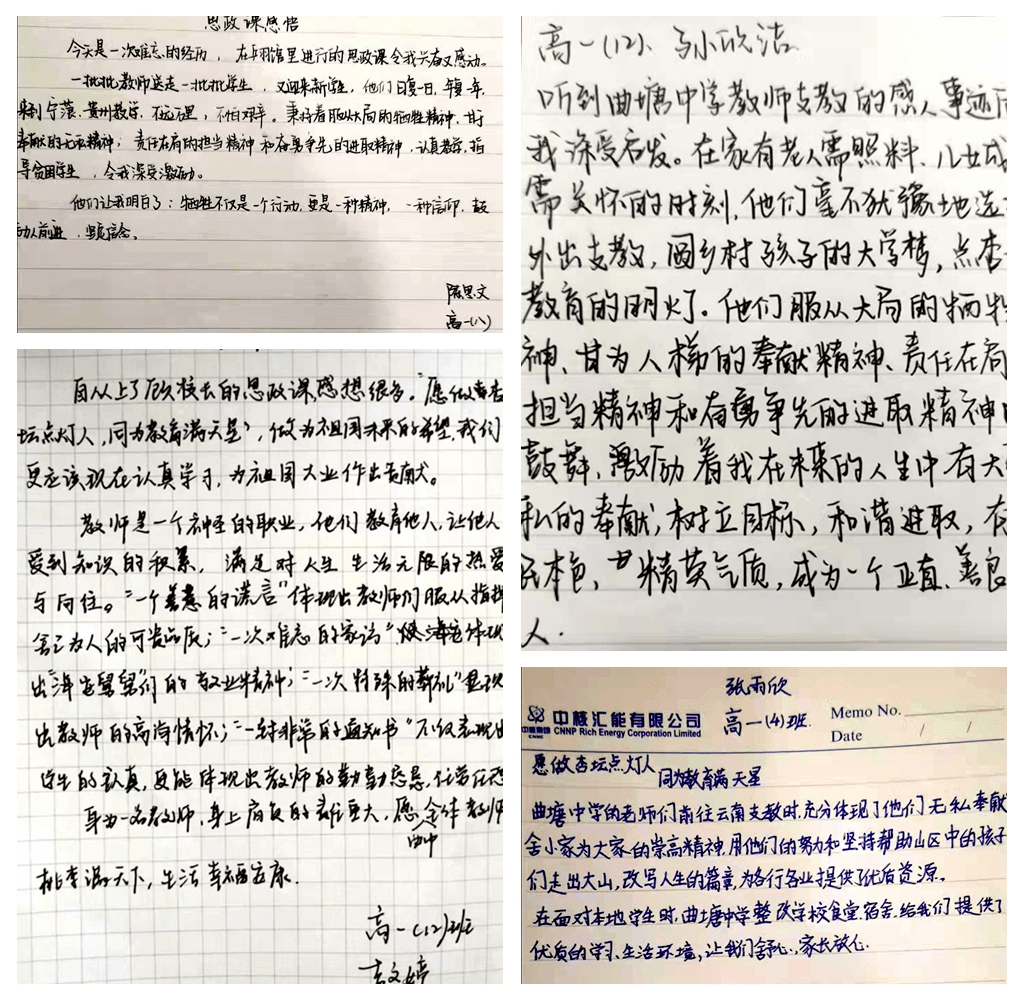 思政课感悟
今天是一次难忘的经历，在乒羽馆里进行的思政课令我兴奋又感动。
一批批教师送走一批批学生，又迎来新学生，他们日复一日，年复一年，
来到宁蒗、贵州教学，不远万里，不怕艰辛。秉持着服从大局的牺牲精神，甘于
奉献的无私精神；责任在肩的担当精神和奋勇争先的进取精神，认真教学，指
导贫困学生，令我深受激励。
他们让我明白了：牺牲不仅是一个行动，更是一种精神，一种信仰，鼓
动人前进，坚定信念。
陈思文
高一（八）
自从上了顾校长的思政课，感想很多。“愿做杏
坛点灯人，同为教育满天星”，做为祖国未来的希望，我们
更应该现在认真学习，为祖国大业作出贡献。
教师是一个神圣的职业，他们教育他人，让他人
受到知识的积累，满足对人生生活无限的热爱
与向往。“一个善意的谎言”体现出教师们服从指挥
舍己为人的可贵品质；“一次难忘的家访”体现
出们的敬业精神；“一次特殊的葬礼”显现
出教师的高尚情怀；“一封非常的通知书”不仅表现出
学生的认真，更能体现出教师的勤勤恳恳，任劳任怨
身为一名教师，身上肩负的责任重大，愿全体教师
曲中
桃李满天下，生活幸福安康.
高一（12）班
婷
高一（12）、孙欣洁
听到曲塘中学教师支教的感人事迹后
我深受启发。在家有老人需照料、儿女成
需关怀的时刻，他们毫不犹豫地选
外出支教，圆乡村孩子的大学梦，点杏
教育的明灯。他们服从大局的牺牲
神、甘为人梯的奉献精神、责任在肩
担当精神和奋勇争先的进取精神
鼓舞，激励着我在未来的人生中有大
私的奉献，树立目标，和谐进取，有
民本色，精英气质，成为一个正直、善良
人.
张雨欣
中核汇能有限公司
CNNP Rich Energy Corporation Limited
中核集团
CNNC
高一（4）班
Memo No.
Date / /
愿做杏坛点灯人
同为教育满天星
曲塘中学的老师们前往云南支教时，充分体现了他们无私奉献
舍小家为大家的崇高精神，用他们的努力和坚持帮助山区中的孩子
们走出大山，改写人生的篇章，为各行各业提供了优质资源。
在面对本地学生时，曲塘中学整改学校食堂、宿舍，给我们提供了
优质的学习、生活环境，让我们舒心，家长放心.